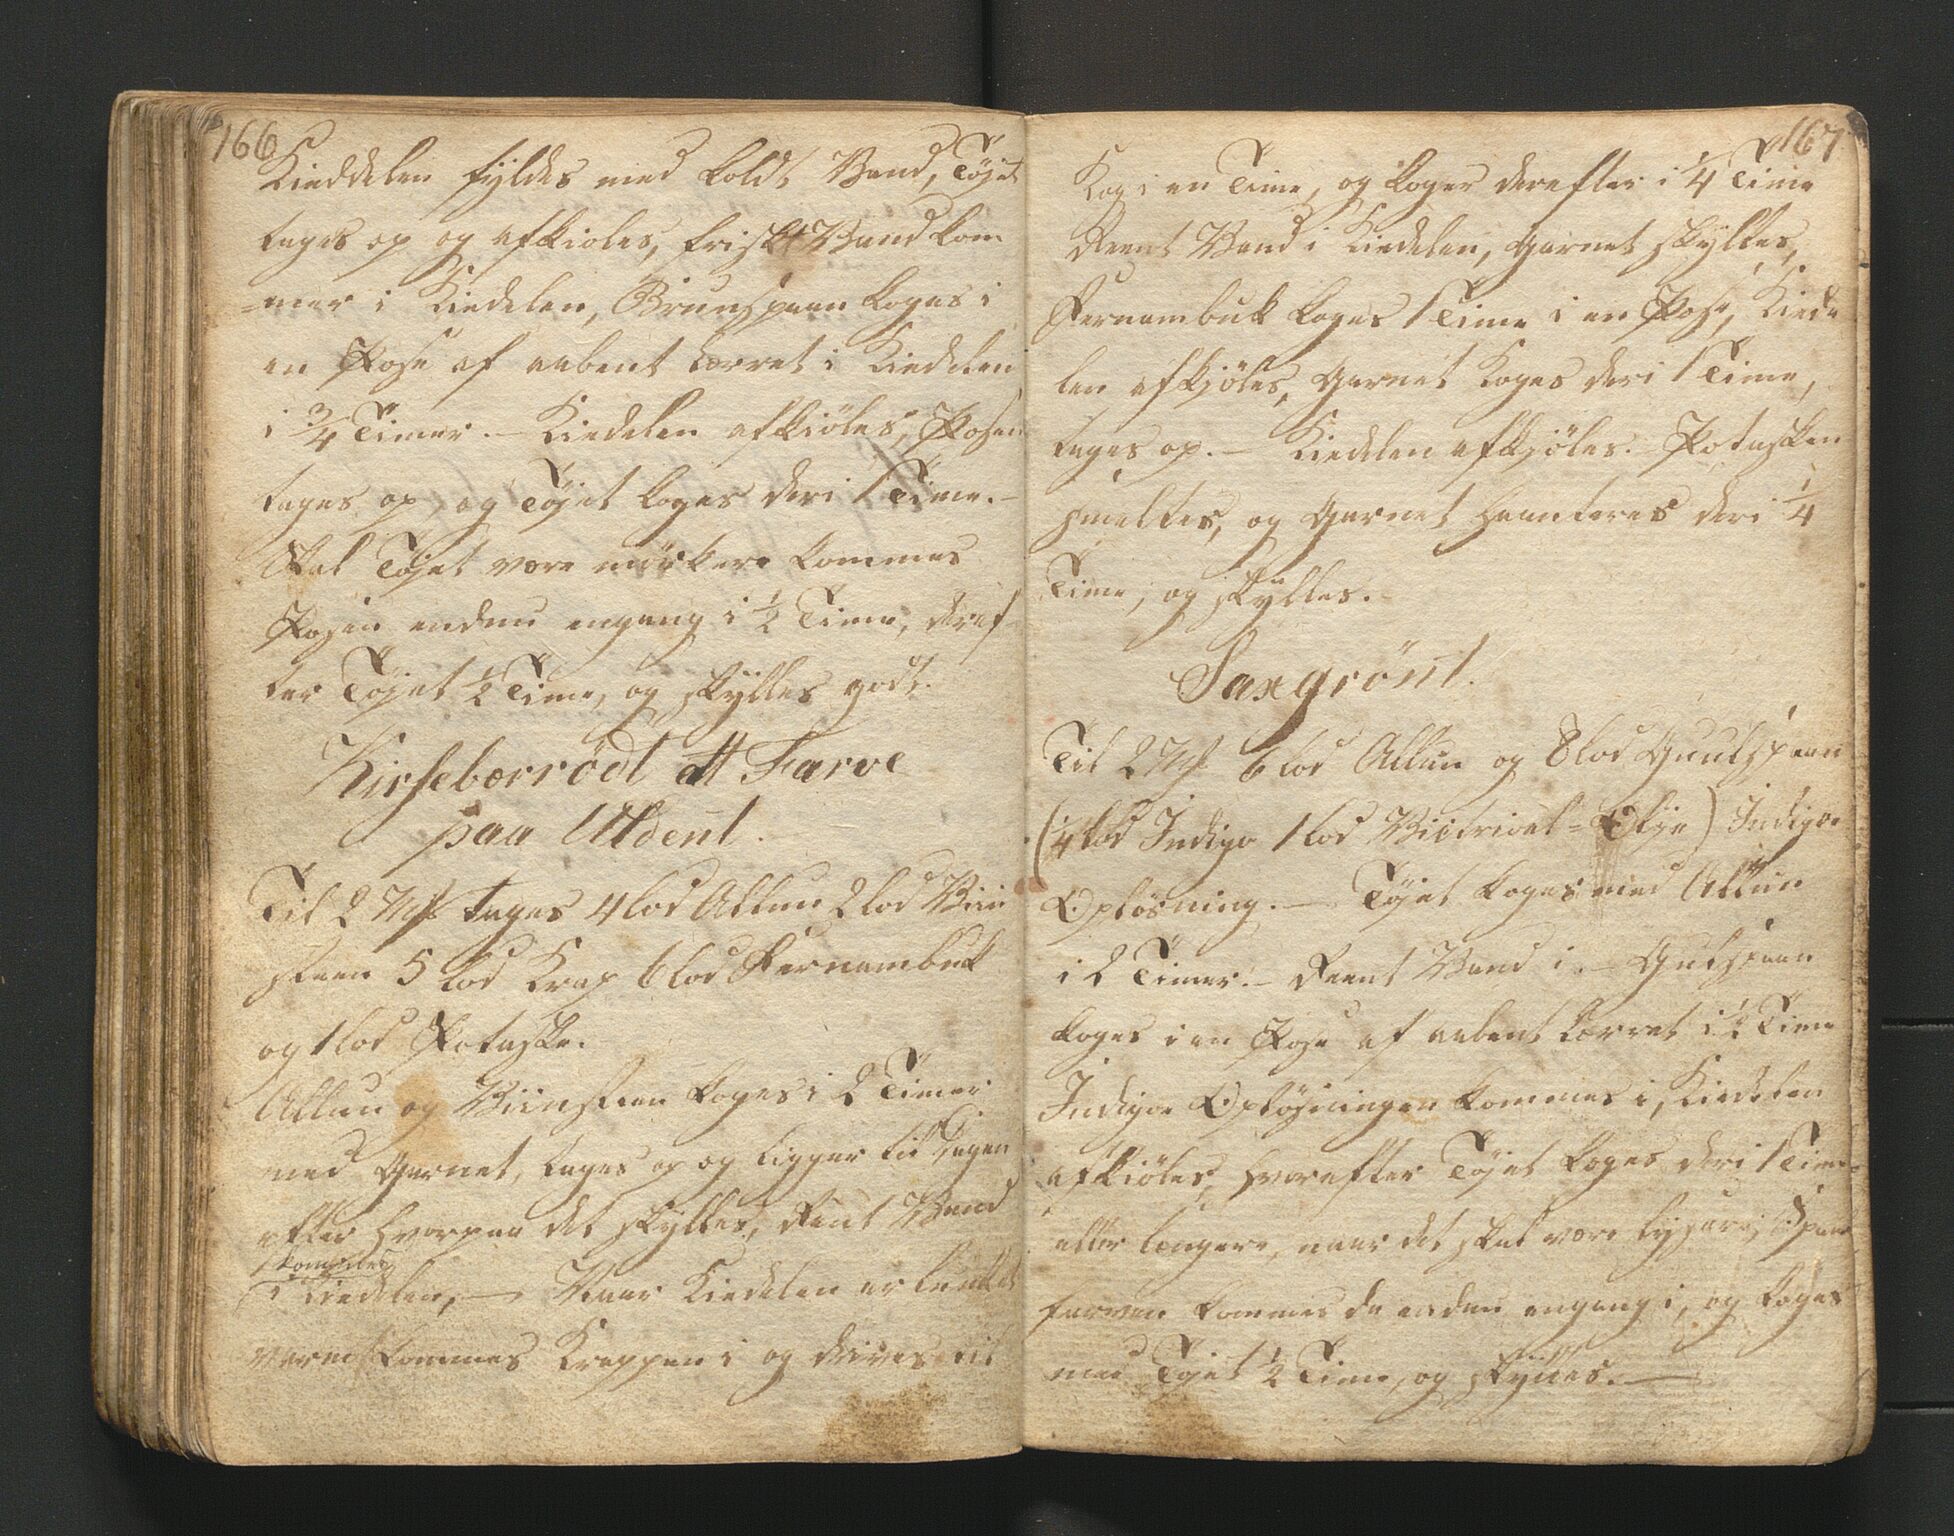 166
Kieddelen fyldes med koldt Vand, Töjet
tages op og afkioles, friskt Vand kom
=mer i Kiedelen, Brunspaan koges i
en Pose af aabent Lærret i Kiedelen
i 3/4 Timer. – Kiedelen afkiöles, Posen
tages op, og Töjet koges deri 1 Time. –
Skal Töjet være mörkere kommes
Posen endnu engang i 1/2 Time, deraf
ter Töjet 1/2 Time, og skylles godt.
Kirsebærrödt at Farve
paa Uldent.
Til 2 M# tages 4 lod Allun 2 lod Viin
steen 5 lod Krap 6 lod Fernambuk
og 1 lod Potaske.
Allun og Viinsteen koges i 2 Timer
med Garnet, tages op og ligger til Dagen
efter hvorpaa det skylles, Rent Vand
kommes
i Kiedelen, – Naar Kiedelen er lunket
varm kommes Krappen i og drives til
167
Kog i en Time, og koger derefter i 1/4 Time
Reent Vand i Kiedelen, Garnet skylles,
Fernambuk koges 1 Time i en Pose, Kiede
len afkjöles, Garnet koges deri 1 Time,
tages op. – Kiedelen afkjöles. – Potasken
smeltes, og Garnet haanteres deri 1/4
Time, og skylles.
Saxgrönt.
Til 2 M# 6 lod Allun og 8 lod Guulspaan
(1/4 lod Indigo 1 lod Viitrioel = Olje) Indigoe
Oplösning. – Töjet koges med Allun
i 2 Timer. – Reent Vand i. – Gulspaan
koges i en Pose af aabent Lærret i 1/2 Time
Indigoe Oplösningen kommes i, Kiedelen
afkiöles, hvorefter Töjet koges deri 1 Time
eller længere, naar det skal være lysere; Spaan
farven kommes da endnu engang i, og koges
med Töjet 1/2 Time, og skylles. –